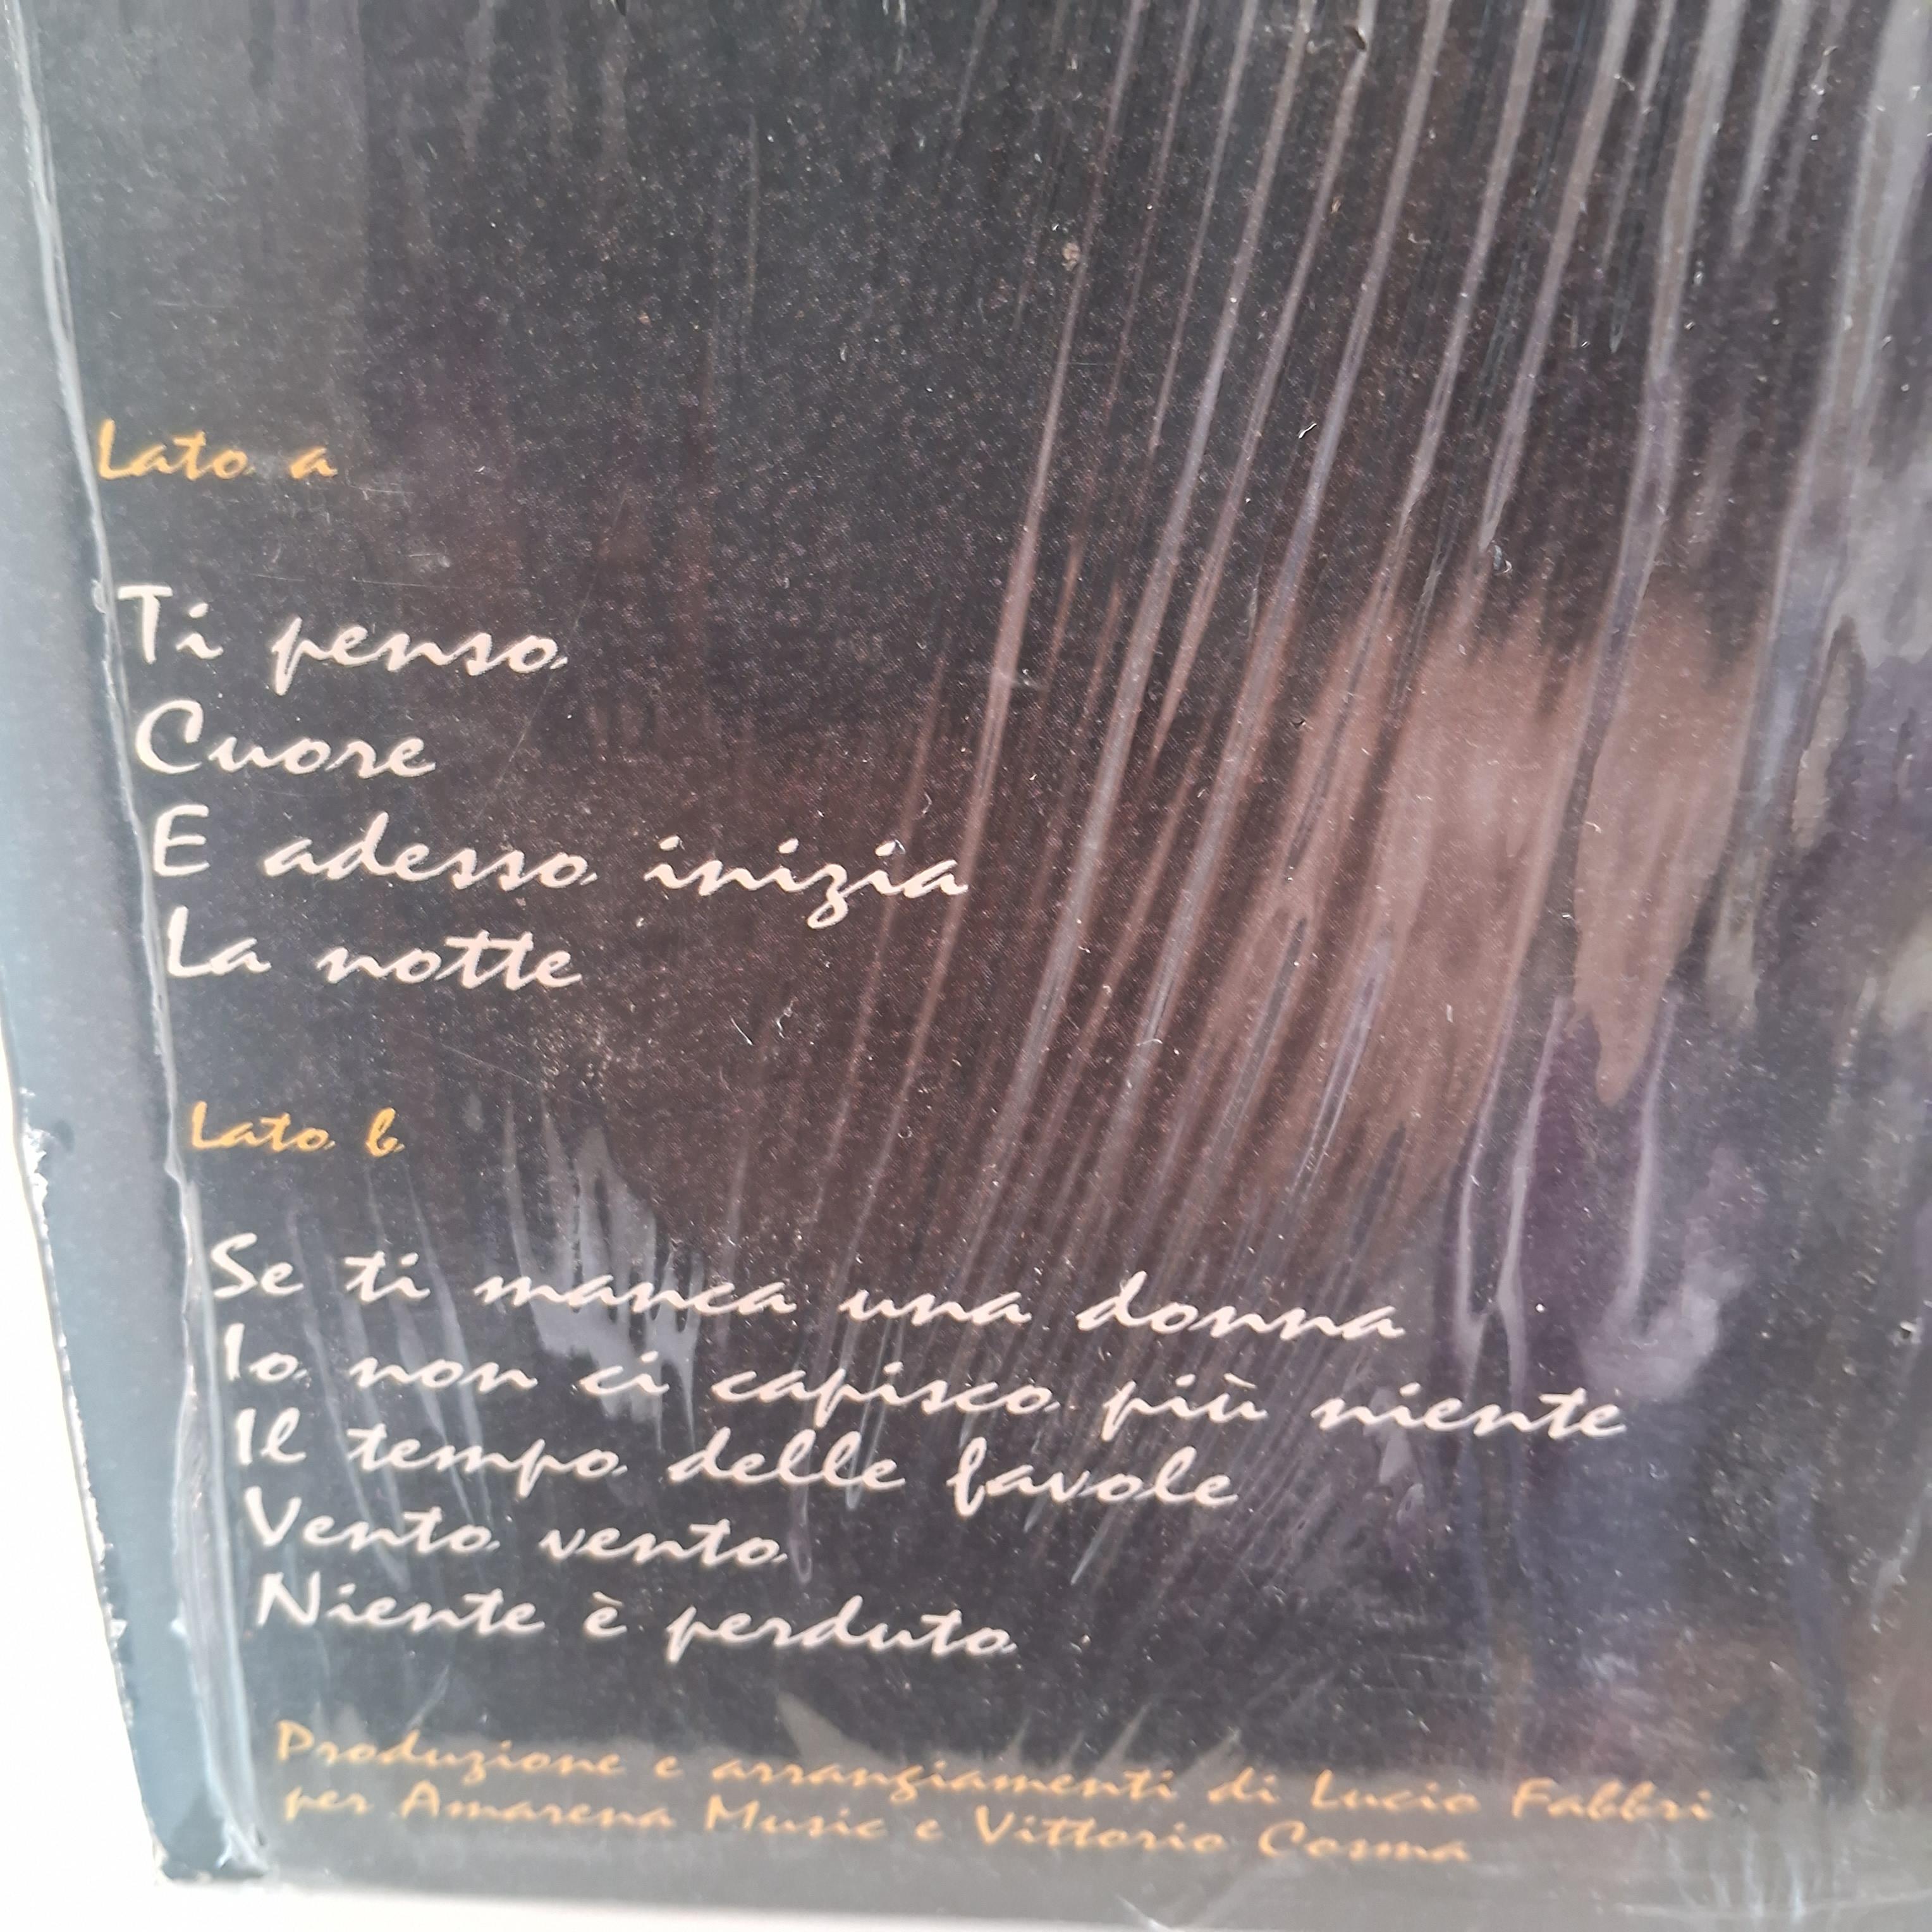 Lato a
Ti penso
Cuore
E adesso inizia
La notte
Lato b
Se ti manca una donna
Io non ci capisco più niente
Il tempo delle favole
Vento vento
Niente è perduto
Produzione e arrangiamenti di Lucio Fabbri
per Amarena Music e Vittorio Cosma